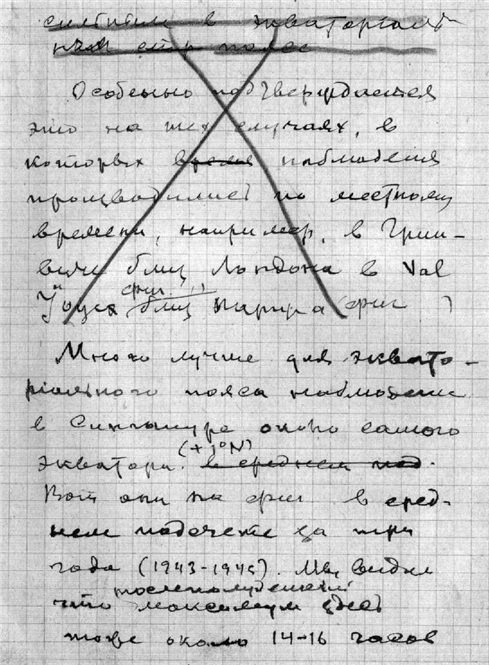 в экваториаль-
ном поясе
Особенно подтверждается
это на тех случаях, в
которых время наблюдения
производились по местному
времени, например, в Грин-
виче близ Лондона в Val
Joyeux фиг. близ Парижа (фиг )
Много лучше для эквато-
риального пояса наблюдения
в Сингапуре около самого
экватора. (+1°N) в среднем под.
Вот они на фиг в сред-
нем подсчете за три
года (1943-1945). Мы видим
что послеполуденный максимум здесь
тоже около 14-16 часов